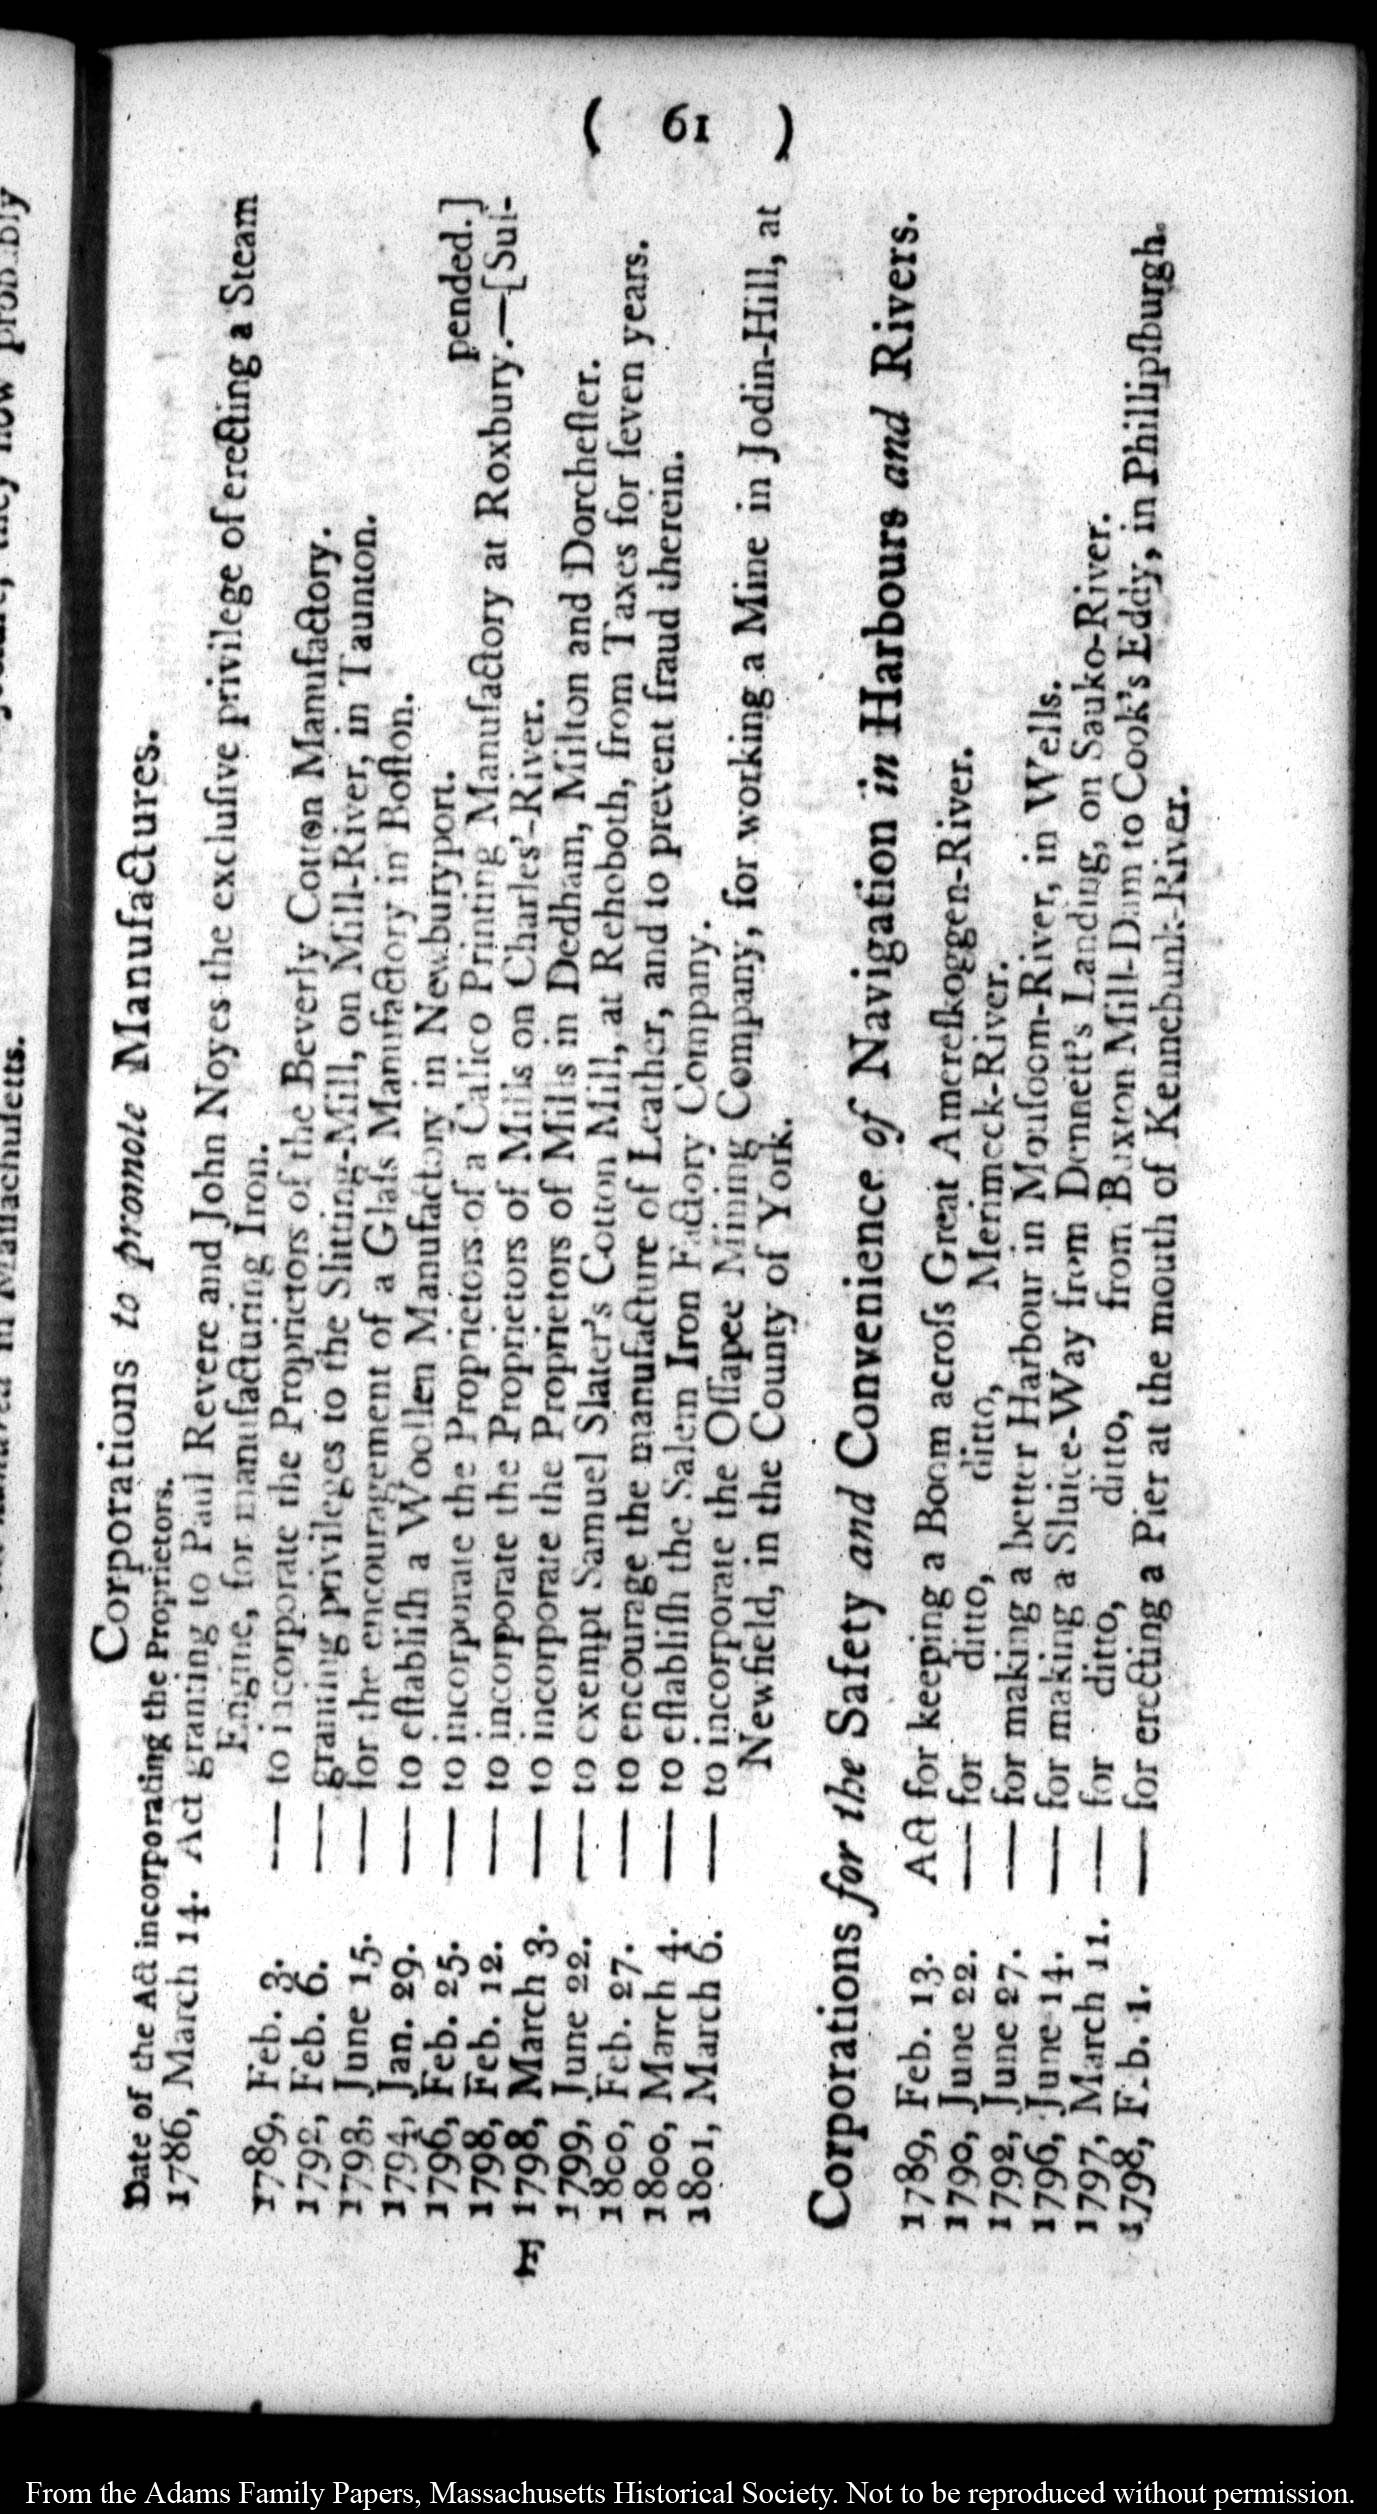 ( 61 )
Corporations to promote Manufactures.
Date of the Act incorporating the Proprietors.
1786, March 14. Act granting to Paul Revere and John Noyes the excluſive privilege of erecting a Steam
Engine, for manufacturing Iron.
1789, Feb. 3. — to incorporate the Proprietors of the Beverly Cotton Manufactory.
1792, Feb. 6. — granting privileges to the Slitting-Mill, on Mill-River, in Taunton.
1793, June 15. — for the encouragement of a Glaſs Manufactory in Boſton.
1794, Jan. 29. — to eſtabliſh a Woollen Manufactory in Newburyport.
pended.]
1796, Feb. 25. — to incorporate the Proprietors of a Calico Printing Manufactory at Roxbury.—[Suſ-
1798, Feb. 12. — to incorporate the Proprietors of Mills on Charles'-River.
1798, March 3. — to incorporate the Proprietors of Mills in Dedham, Milton and Dorcheſter.
1799, June 22. — to exempt Samuel Slater's Cotton Mill, at Rehoboth, from Taxes for ſeven years.
1800, Feb. 27. — to encourage the manufacture of Leather, and to prevent fraud therein.
1800, March 4. — to eſtabliſh the Salem Iron Factory Company.
1801, March 6. — to incorporate the Oſſapee Mining Company, for working a Mine in Jodin-Hill, at
Newfield, in the County of York.
Corporations for the Safety and Convenience of Navigation in Harbours and Rivers.
1789, Feb. 13. Act for keeping a Boom acroſs Great Amereſkoggen-River.
1790, June 22. — for ditto, ditto, Merimeck-River.
1792, June 27. — for making a better Harbour in Mouſoom-River, in Wells.
1796, June 14. — for making a Sluice-Way from Dennett's Landing, on Sauko-River.
1797, March 11. — for ditto, ditto, from Buxton Mill-Dam to Cook's Eddy, in Phillipſburgh.
1798, Feb. 1. — for erecting a Pier at the mouth of Kennebunk-River.
E
From the Adams Family Papers, Massachusetts Historical Society. Not to be reproduced without permission.